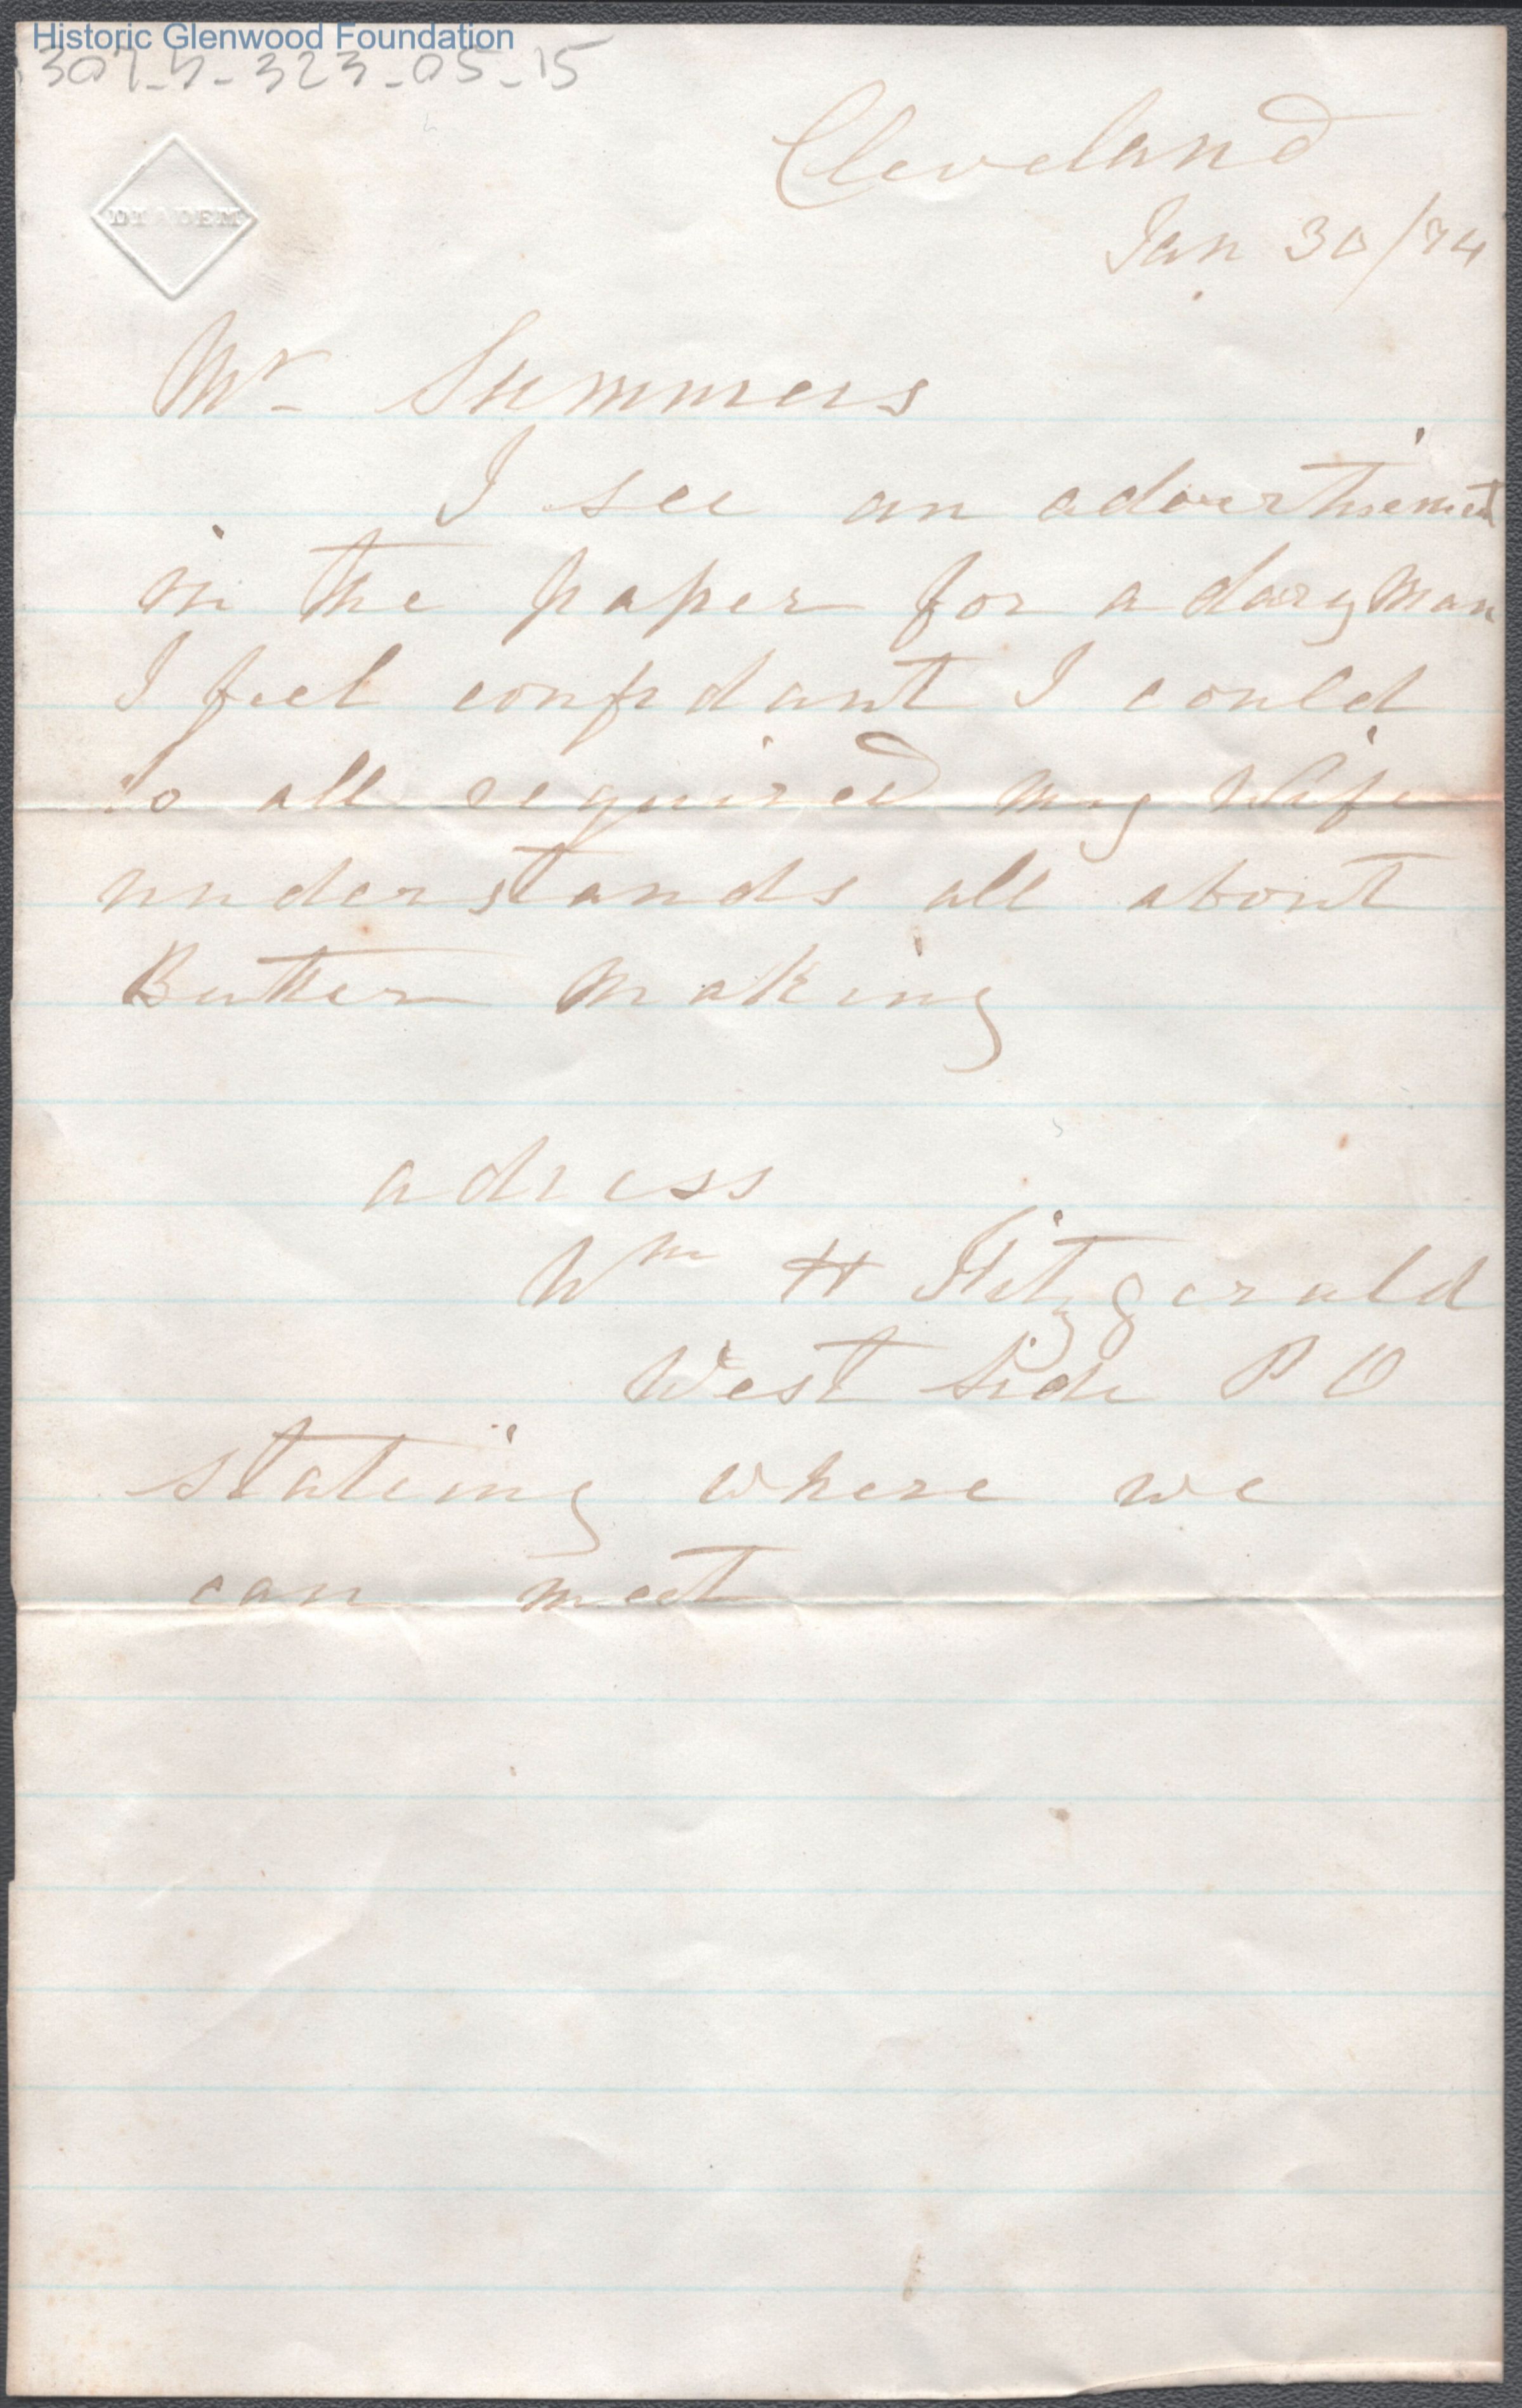 Historic Glenwood Foundation
307-5-323-05-15
DIADEM
Cleveland
Jan 30/74
Mr Summers
I see an advertisement
in the paper for a dary man
I feel confidant I could
do all required my Wife
understands all about
Butter Making
adress
Wm H Fitzgerald
West Side P O
stateing where we
can meet